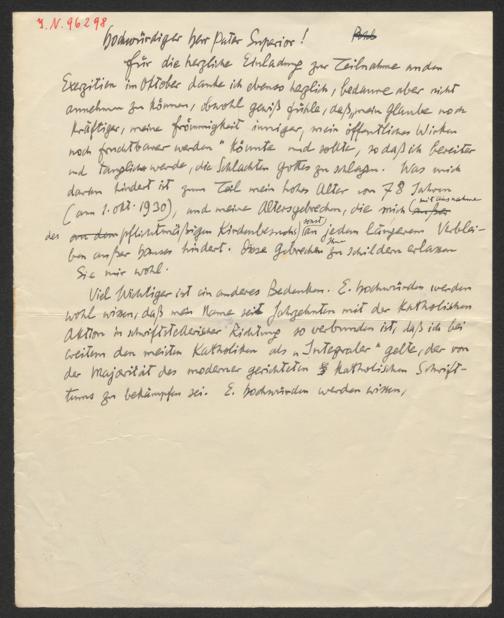 J. N. 96298
Hochwürdiger Herr Pater Superior!
Für die herzliche Einladung zur Teilnahme an den
Exerzitien im Oktober danke ich ebenso herzlich, bedaure aber nicht
annehmen zu können, obwohl gewiß fühle, daß „mein Glaube noch
kräftiger, meine Frömmigkeit inniger, mein öffentliches Wirken
noch fruchtbarer werden" könnte und sollte, so daß ich bereiter
und tauglicher werde, die Schlachten Gottes zu schlagen. Was mich
daran hindert ist zum Teil mein hohes Alter von 78 Jahren
(am 1. Okt. 1930), und meine Altersgebrechen, die mich (mit Ausnahme
des pflichtmäßigen Kirchenbesuchs) sonst an jedem längerem Verblei-
ben außer Hauses hindert. Diese Gebrechen zu schildern erlassen
Sie mir wohl.
Viel Wichtiger ist ein anderes Bedenken. E. Hochwürden werden
wohl wissen, daß mein Name seit Jahrzehnten mit der Katholischen
Aktion in schriftstellerischer Richtung so verbunden ist, daß ich bei
weitem den meisten Katholiken als „Integraler" gelte, der von
der Majorität des moderner gerichteten katholischen Schrift-
tums zu bekämpfen sei. E. Hochwürden werden wissen,